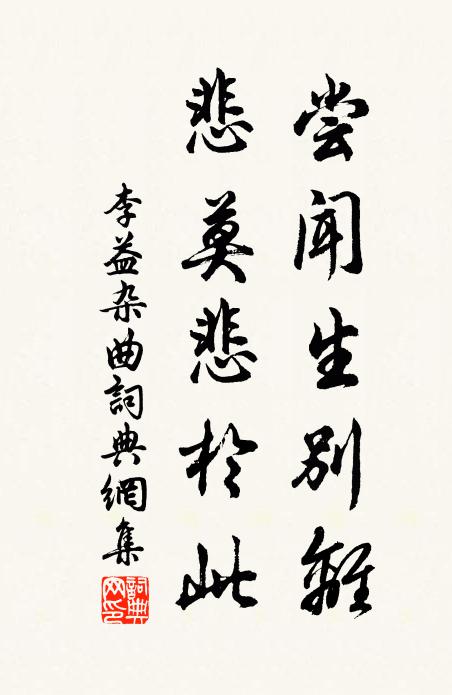 尝闻生别離
悲莫悲於此
李益杂曲詞典網集
詞典网印